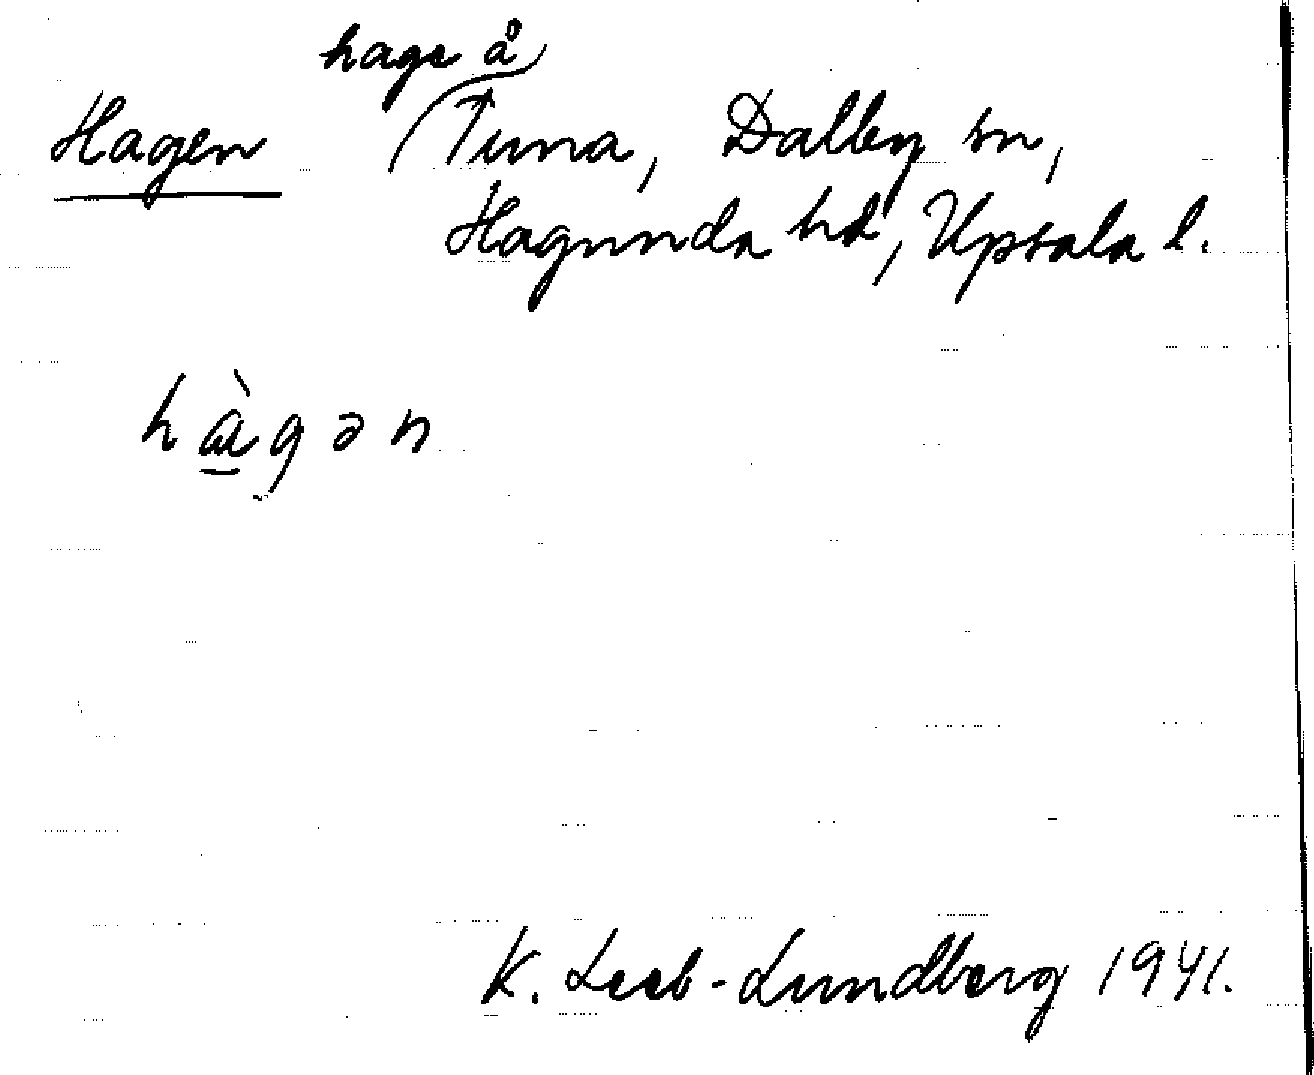 hage å
Hagen Tuna, Dalby sn,
Hagunda hd, Upsala l.
hàgən
K. Leeb-Lundberg 1941.